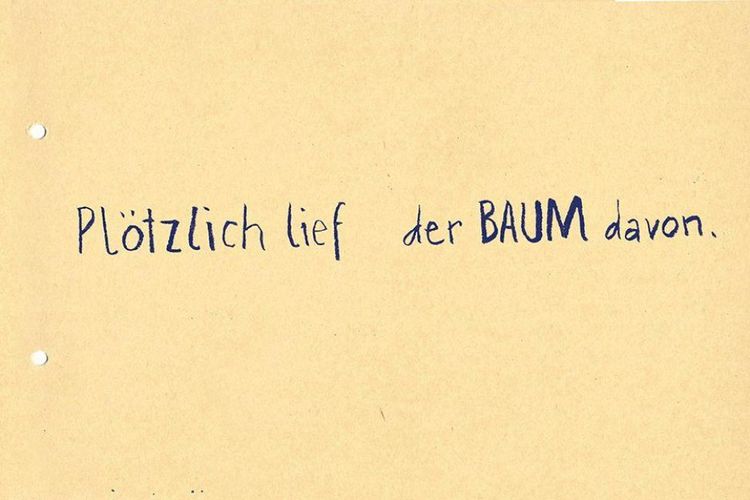 Plötzlich lief der BAUM davon.